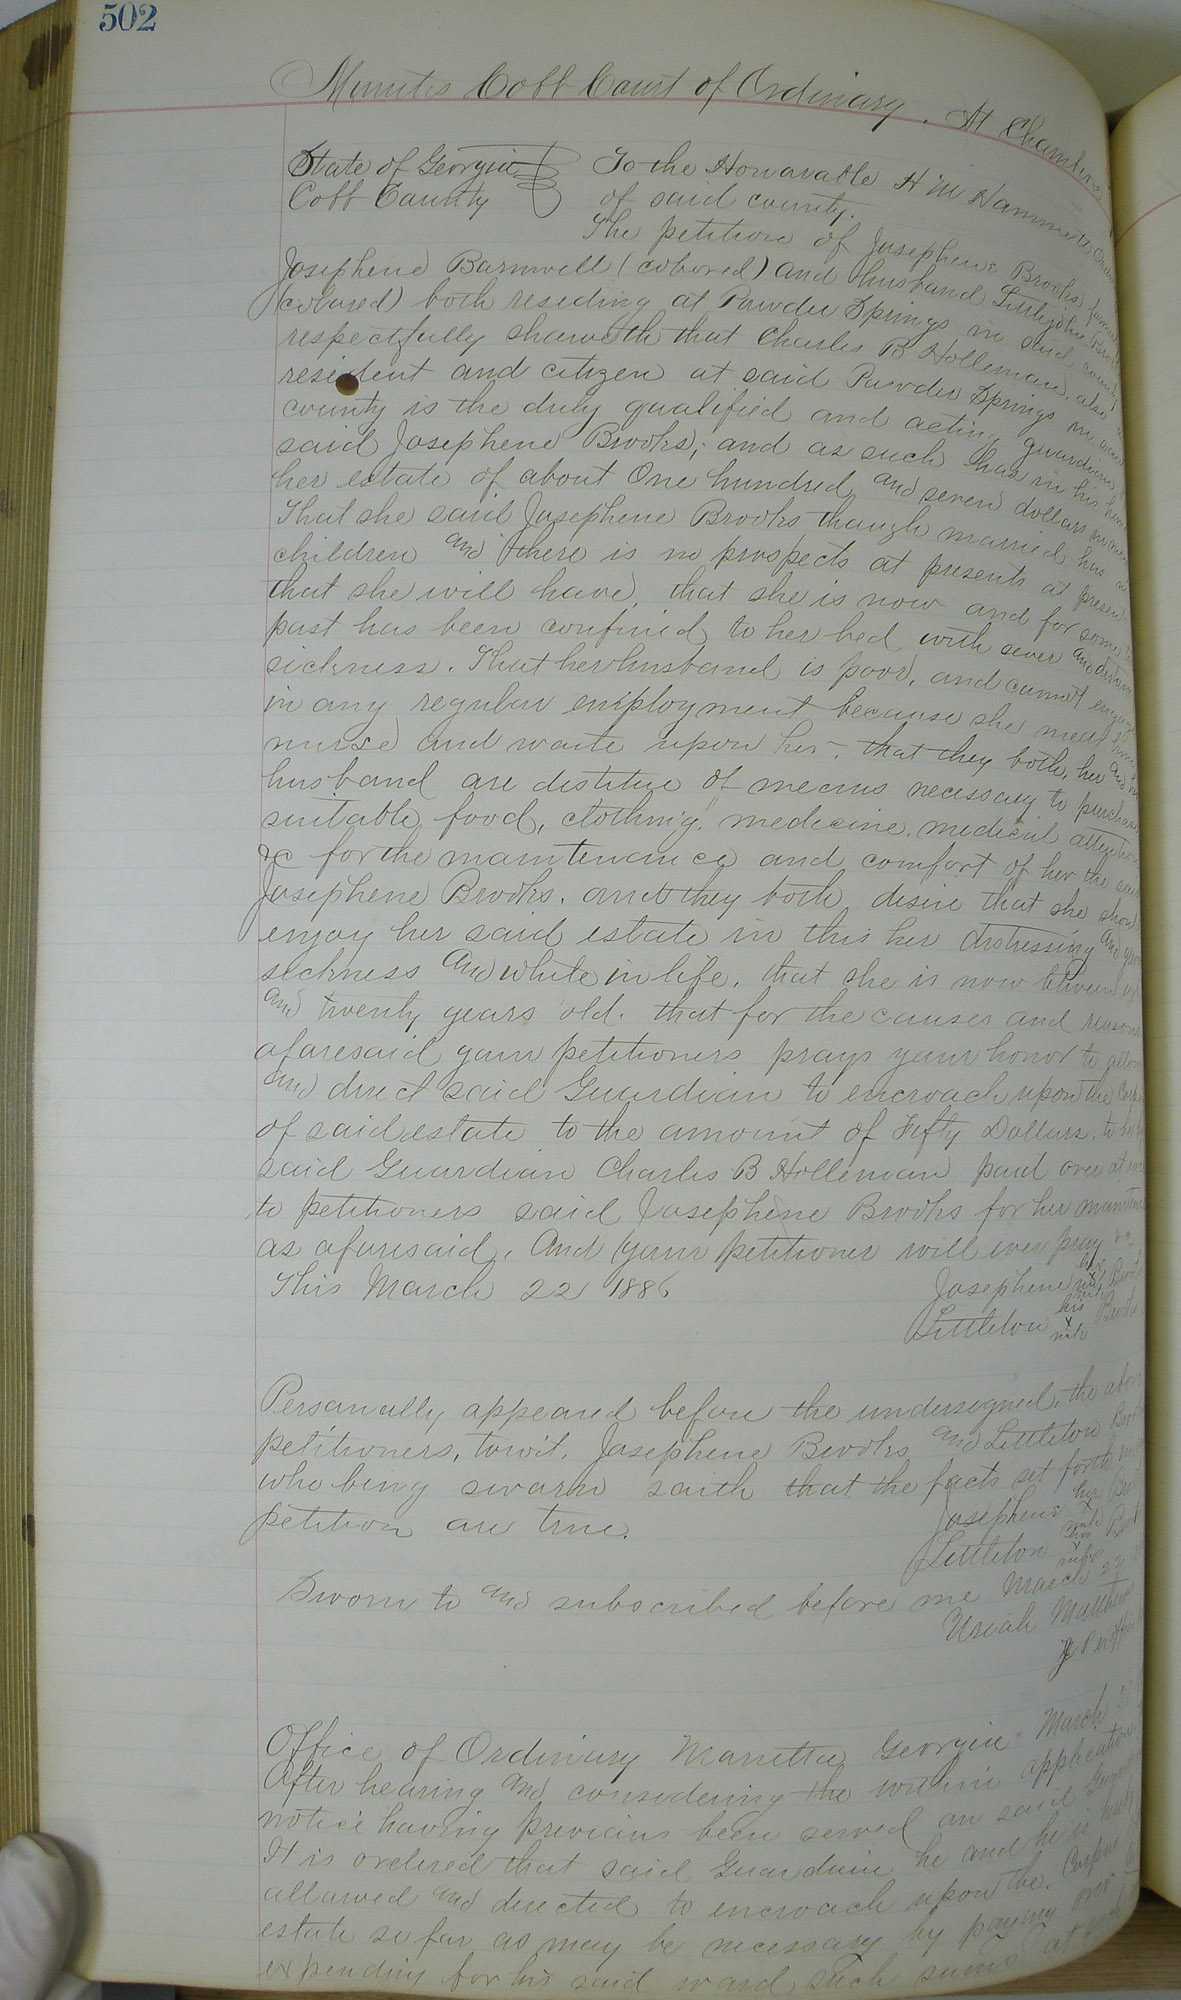 502
Minutes Cobb Court of Ordinary. At Chambers
State of Georgia To the Honarable H M Hammett
Cobb County of said county.
The petition of Josephene Brooks
Josephene Barnwell (colored) and husband Littlejohn
(colored) both residing at Powder Springs in said county
respectfully showeth that Charles B Holleman, also
resident and citizen at said Powder Springs in
county is the duly qualified and acting guardian
said Josephene Brooks; and as such has in his
her estate of about One hundred and seven dollars
That she said Josephene Brooks though married has
children and there is no prospects at presents at present
that she will have, that she is now and for some
past has been confined to her bed with sever and
sickness. That her husband is poor, and cannot
in any regular employment because she needs
nurse and waite upon her, that they both, her and
husband are distitue of means necessary to purchase
suitable food, clothing, medicine, medical attention
&c for the maintenance and comfort of her the said
Josephene Brooks. and they both desire that she should
enjoy her said estate in this her distressing and
sickness and while in life. that she is now
and twenty years old. that for the causes and reasons
aforesaid your petitioners prays your honor to allow
and direct said Guardian to encroach upon the
of said estate to the amount of Fifty Dollars. to be
said Guardian Charles B Holleman paid over at
to petitioners said Josephene Brooks for her
as aforesaid. And your petitioner will ever pray &c
This March 22 1886 Josephene her x mark
Littleton his x mark Brooks
Personally appeared before the undersigned, the above
petitioners, towit. Josephene Brooks and Littleton
who being sworn saith that the facts set forth
petition are true. Josephene her
Littleton his
Sworn to and subscribed before me March 22
Usiah Matthews
Office of Ordinary Marietta Georgia March
After hearing and considering the within application
notice having previous been served on said
It is ordered that said Guardian be and he is
allowed and directed to encroach upon the Corpus
estate so far as may be necessary by paying over
expending for his said ward such sums at